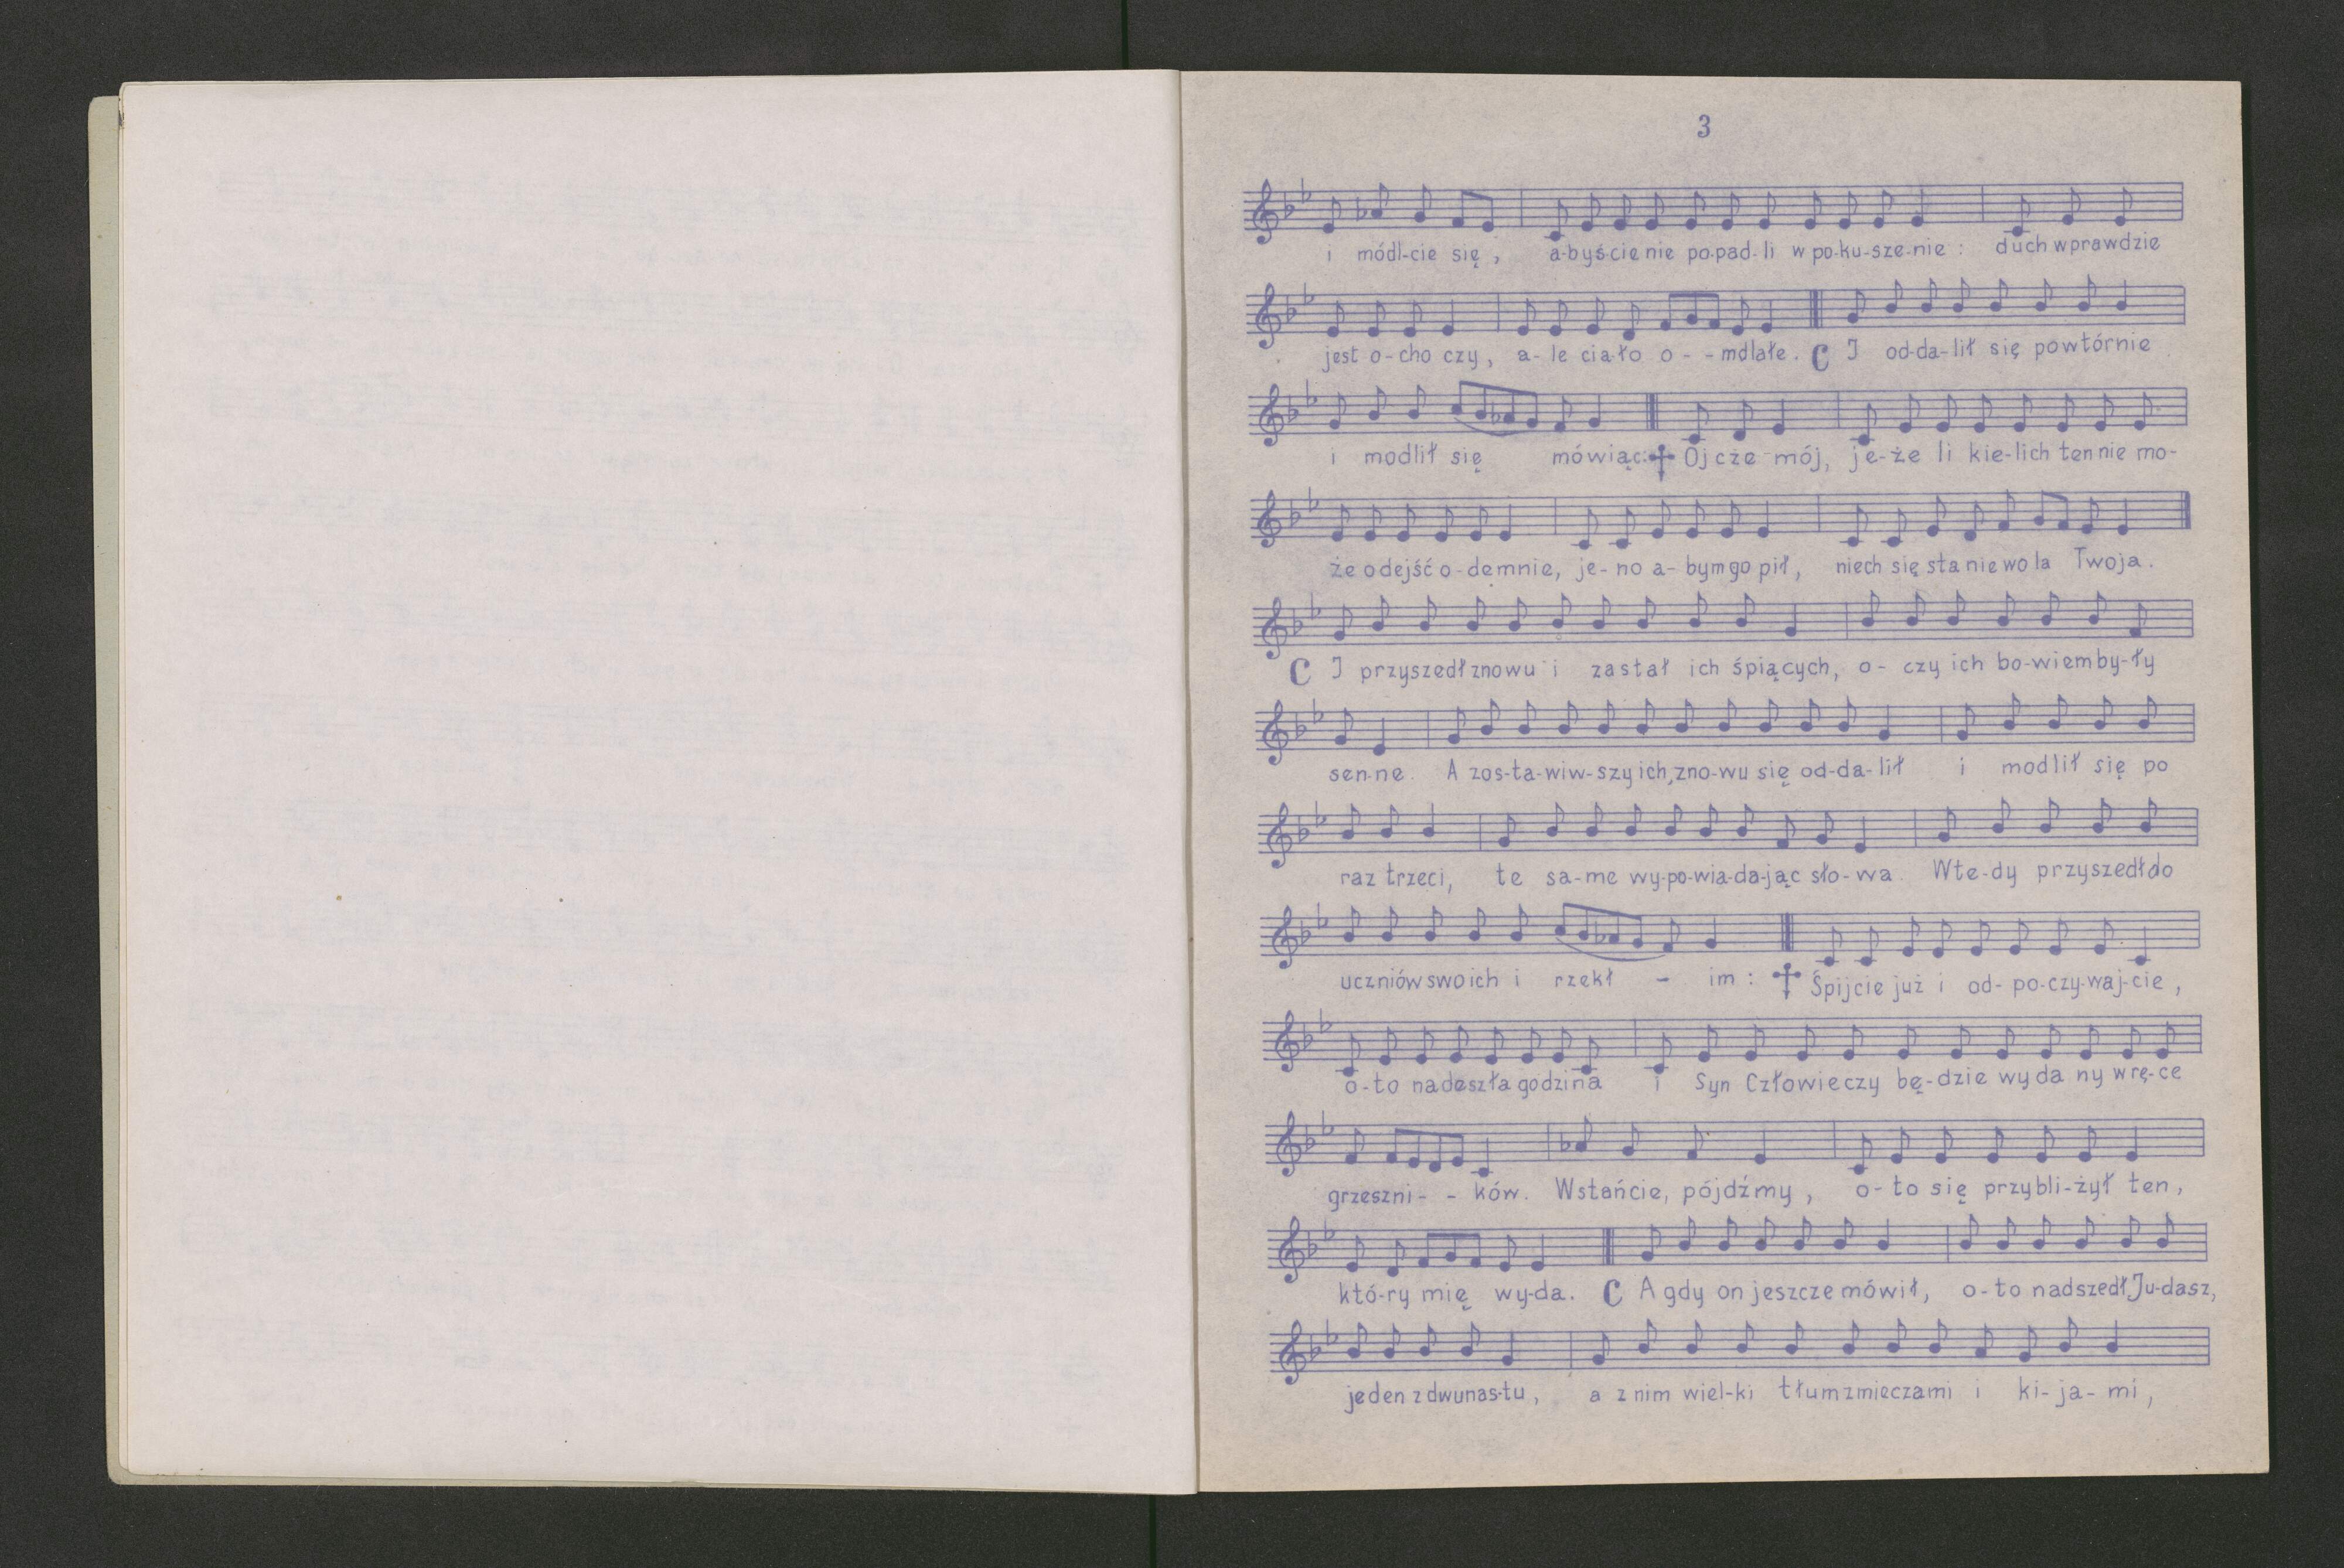 3
i módl-cie się, a-byś-cie nie po-pad-li w po-ku-sze-nie: duch wprawdzie
jest o-cho czy, a-le cia-ło o- - mdlałe. C I od-da-lił się powtórnie
i modlił się mówiąc: ✝ Ojcze mój, je-że li kie-lich ten nie mo-
że odejść o-demnie, je-no a-bym go pił, niech się sta nie wo la Twoja.
C I przyszedł znowu i zastał ich śpiących, o- czy ich bo-wiem by-ły
sen-ne. A zos-ta-wiw-szy ich, zno-wu się od-da-lił i modlił się po
raz trzeci, te sa-me wy-po-wia-da-jąc sło-wa. Wte-dy przyszedł do
uczniów swoich i rzekł - im: ✝ Śpijcie już i od-po-czy-waj-cie,
o-to nadeszła godzina i Syn Człowieczy bę-dzie wy da ny w rę-ce
grzeszni- - ków. Wstańcie, pójdźmy, o-to się przybli-żył ten,
któ-ry mię wy-da. C A gdy on jeszcze mówił, o-to nadszedł Ju-dasz,
jeden z dwunas-tu, a z nim wiel-ki tłum z mieczami i ki-ja-mi,